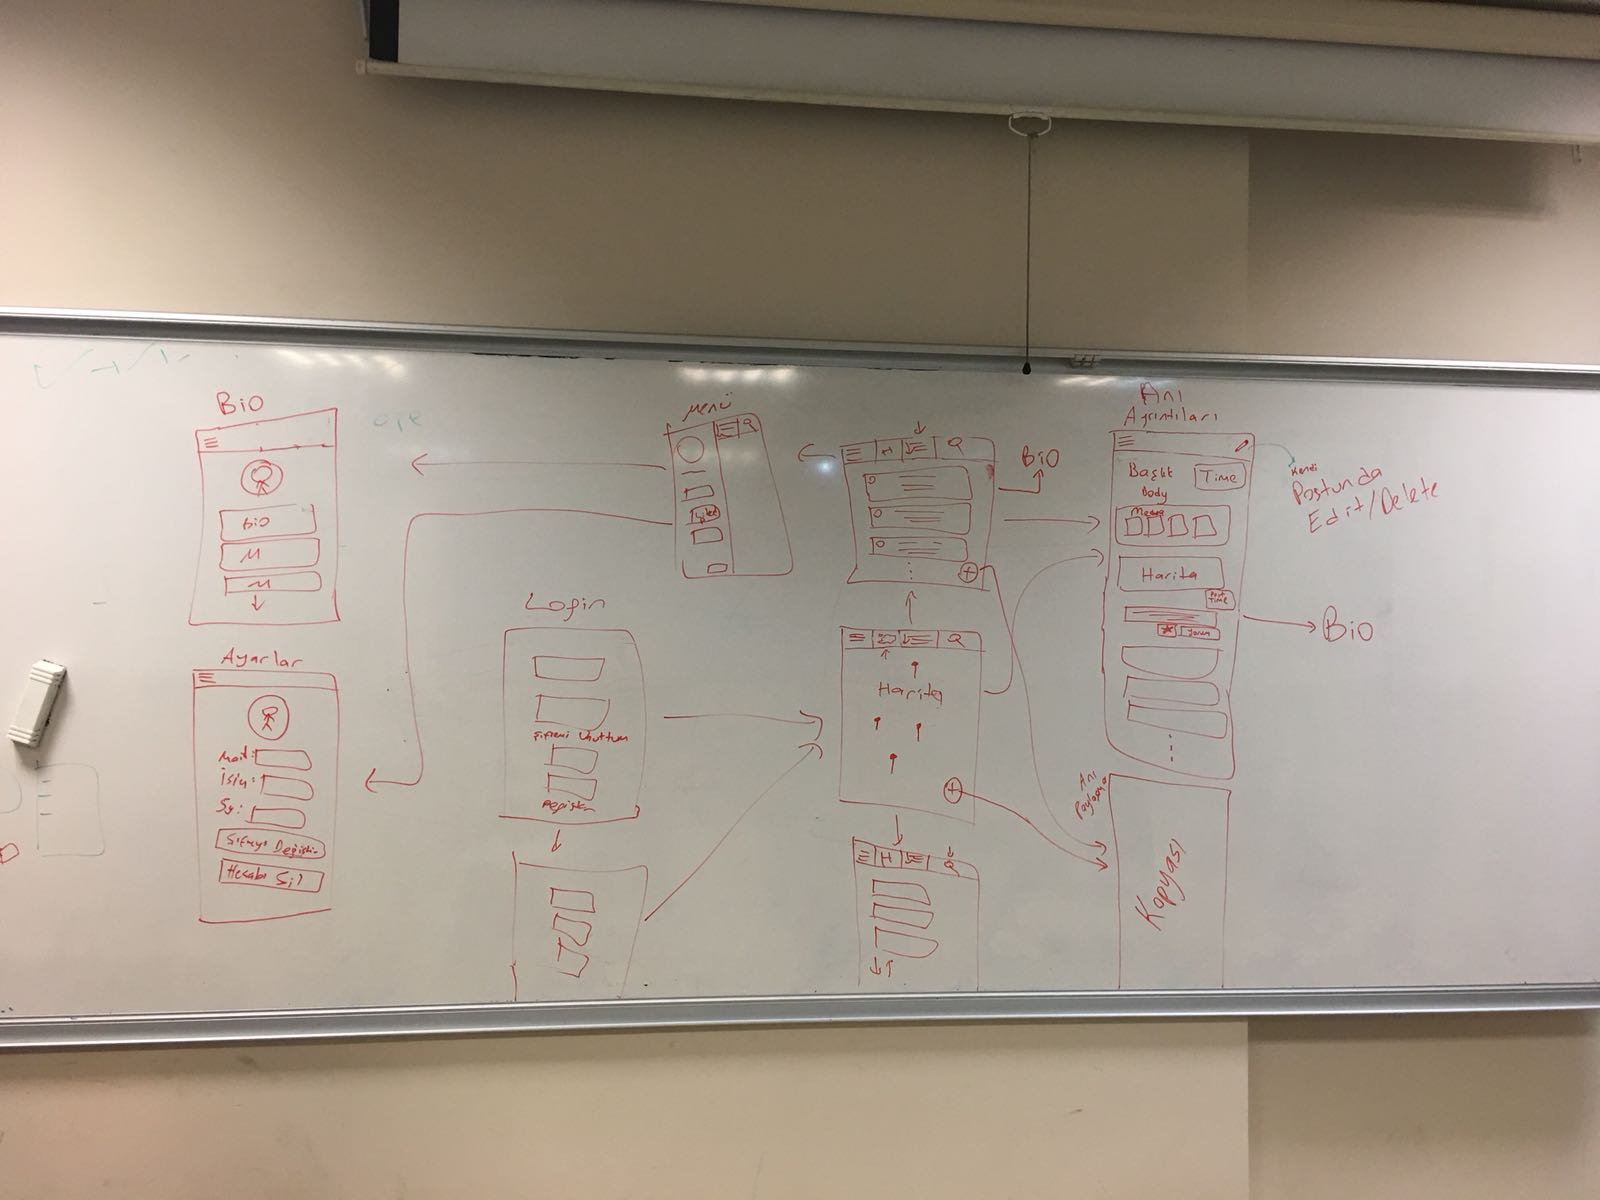 Bio
Bio
Ayarlar
Mail:
İsim:
Şifreyi Değiştir
Hesabı Sil
Menü
Login
Şifremi Unuttum
Register
Bio
H
Harita
H
Anı
Ayrıntıları
Başlık
Time
Body
Media
Harita
Post
Time
Yorum
Kendi
Postunda
Edit/Delete
Bio
Anı
Paylaşma
Kopyası